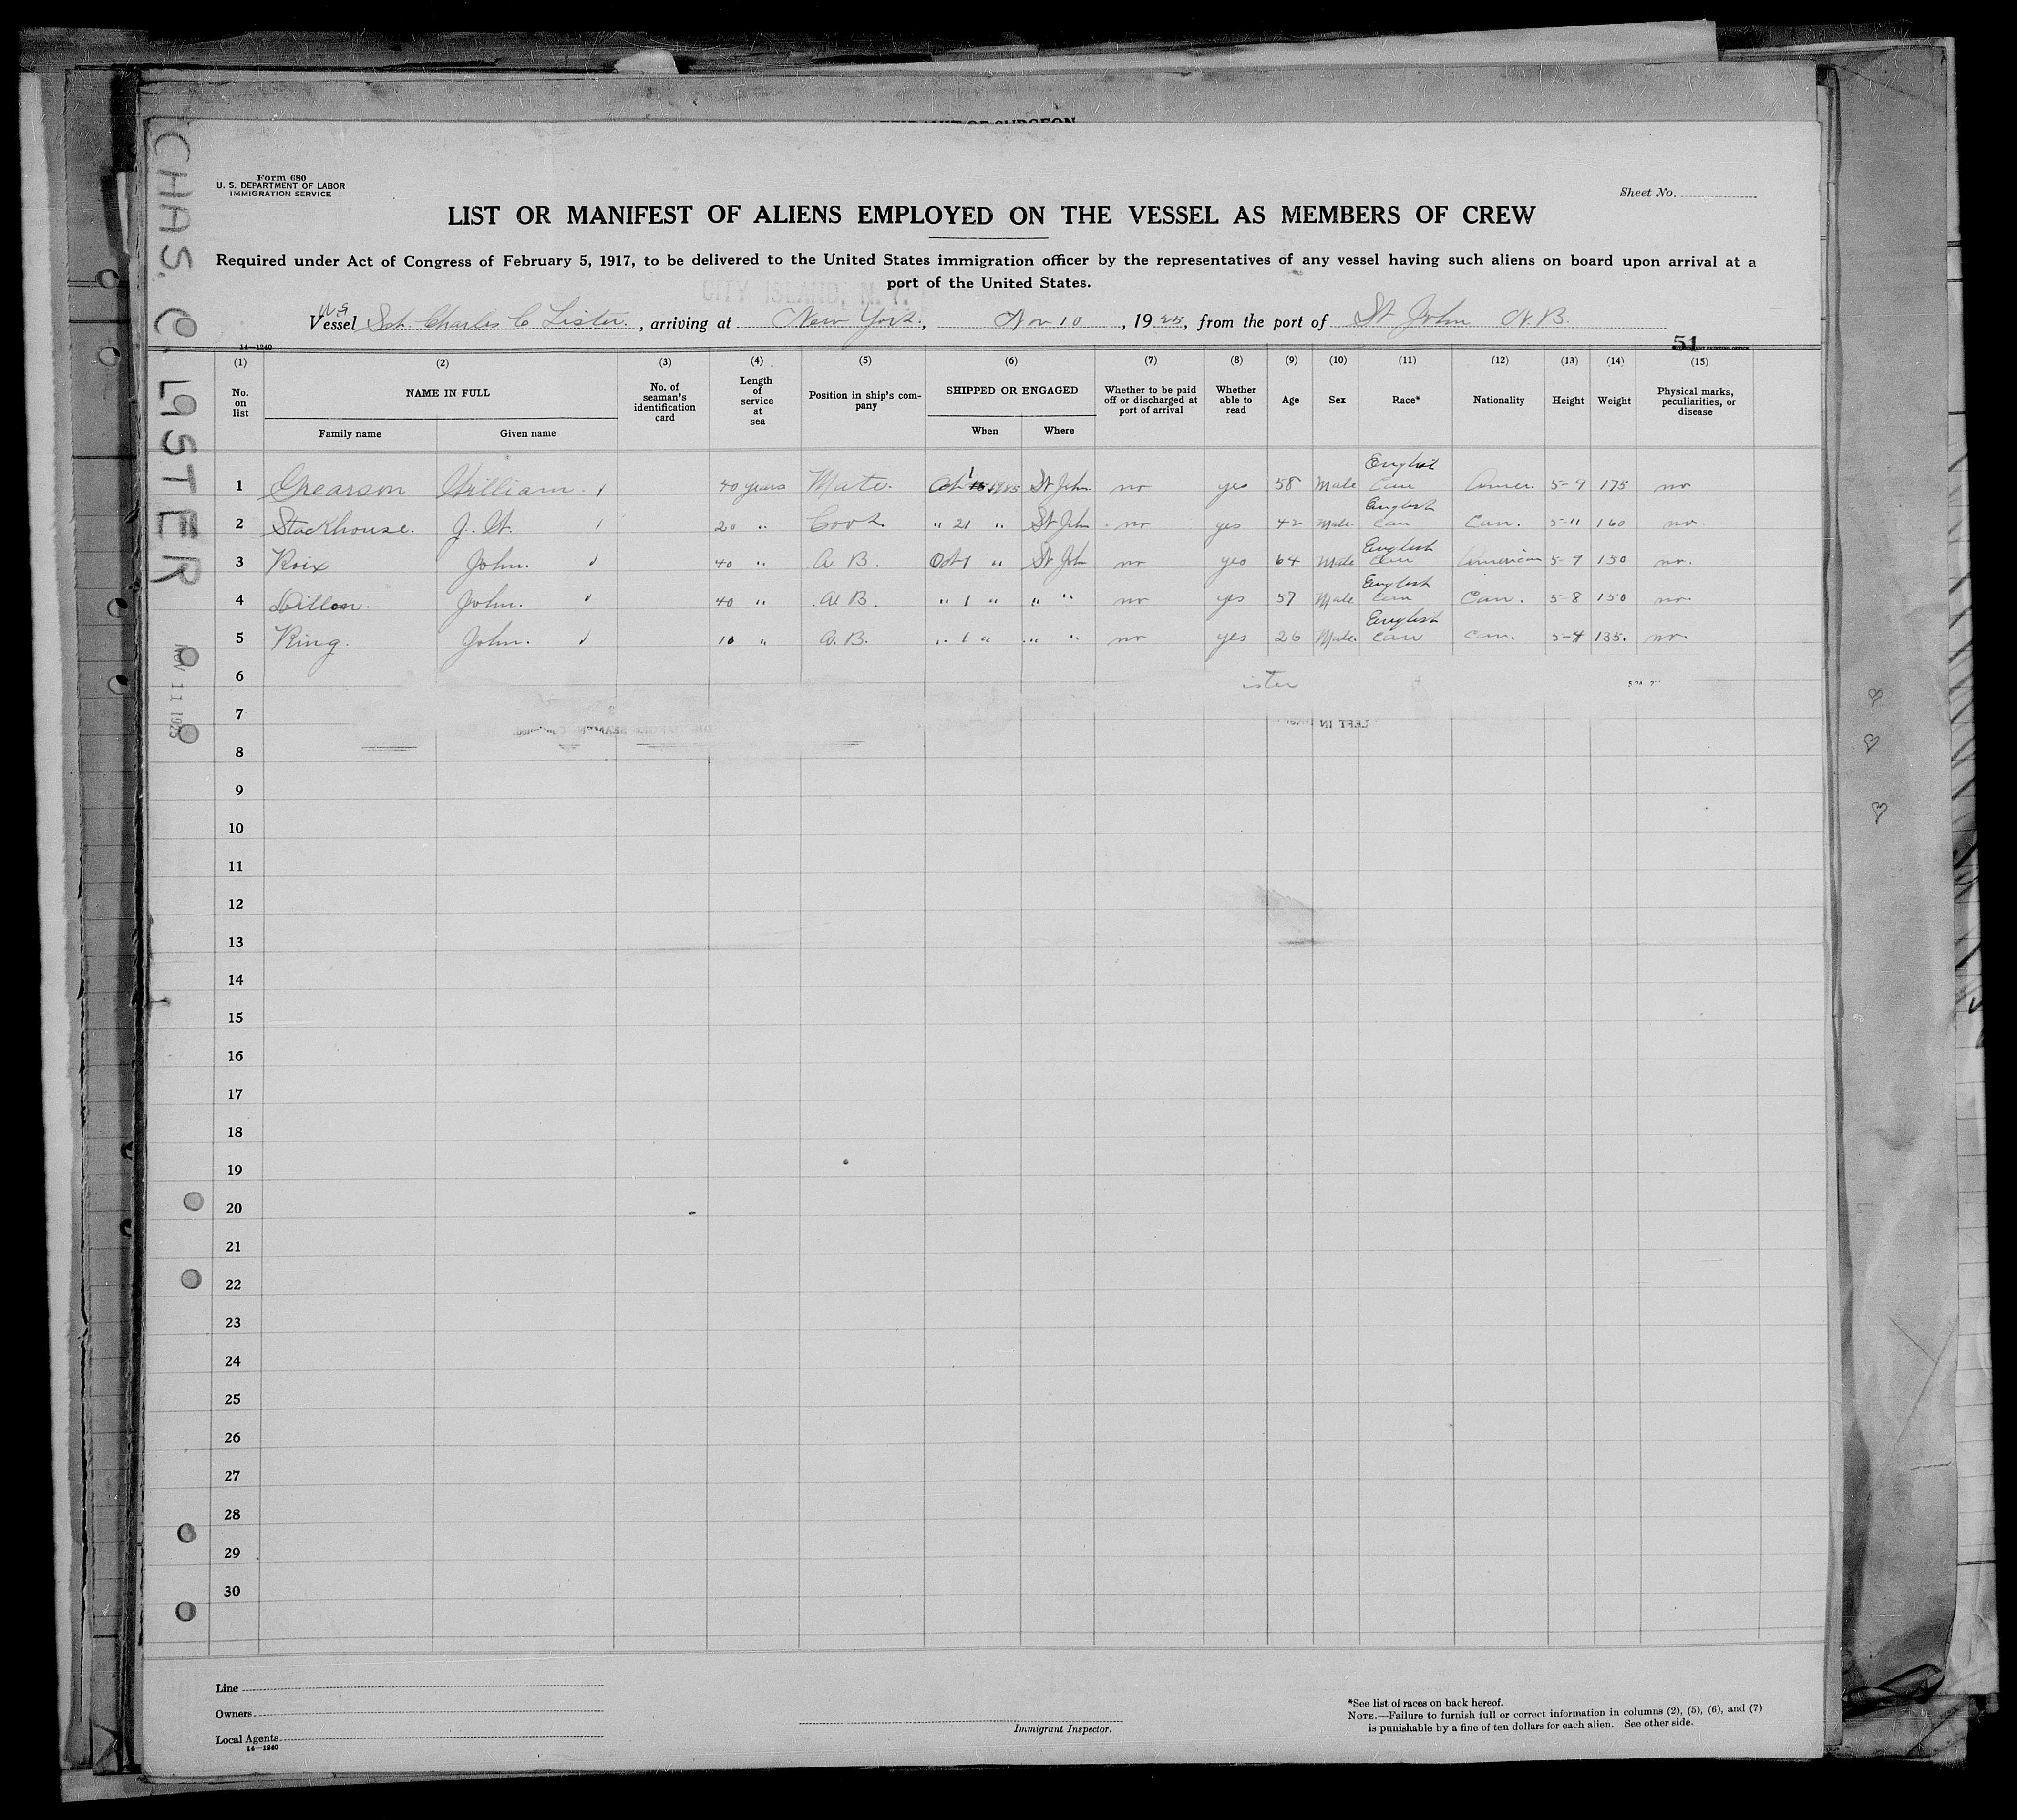 AFFIDAVIT OF SURGEON
CHAS. C. LISTER
NOV 11 1925
Form 680
U. S. DEPARTMENT OF LABOR
IMMIGRATION SERVICE
Sheet No.
LIST OR MANIFEST OF ALIENS EMPLOYED ON THE VESSEL AS MEMBERS OF CREW
Required under Act of Congress of February 5, 1917, to be delivered to the United States immigration officer by the representatives of any vessel having such aliens on board upon arrival at a
port of the United States.
CITY ISLAND, N. Y.
Vessel Sch Charles C Lister., arriving at New York., Nov 10, 1925, from the port of St John N.B.
14—1240
51
(1) (2) (3) (4) (5) (6) (7) (8) (9) (10) (11) (12) (13) (14) (15)
No. on list NAME IN FULL No. of seaman's identification card Length of service at sea Position in ship's company SHIPPED OR ENGAGED Whether to be paid off or discharged at port of arrival Whether able to read Age Sex Race* Nationality Height Weight Physical marks, peculiarities, or disease
Family name Given name When Where
1 Grearson William. 40 years Mate. Oct 1 1925 St John no yes 58 Male English Can Amer. 5-9 175 no
2 Stackhouse. J. W. 20 " Cook " 21 " St John no yes 42 Male. English Can Can. 5-11 160 no.
3 Roix John. 40 " A. B. Oct 1 " St John no yes 64 Male English Can American 5-9 150 no.
4 Dillon. John. 40 " A B. " 1 " " " no yes 57 Male English Can Can. 5-8 150 no.
5 King. John. 10 " A. B. " 1 " " " no yes 26 Male. English Can Can. 5-4 135. no.
6
ister
7
8
9
10
11
12
13
14
15
16
17
18
19
20
21
22
23
24
25
26
27
28
29
30
Line
Owners
Local Agents
14—1240
Immigrant Inspector.
*See list of races on back hereof.
NOTE.—Failure to furnish full or correct information in columns (2), (5), (6), and (7)
is punishable by a fine of ten dollars for each alien. See other side.